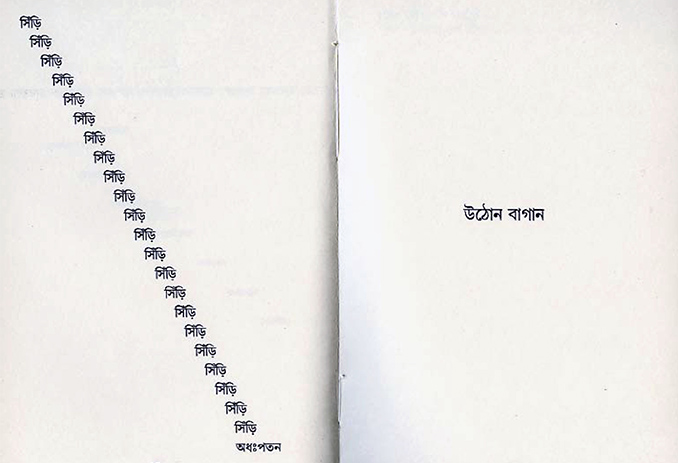 সিঁড়ি
সিঁড়ি
সিঁড়ি
সিঁড়ি
সিঁড়ি
সিঁড়ি
সিঁড়ি
সিঁড়ি
সিঁড়ি
সিঁড়ি
সিঁড়ি
সিঁড়ি
সিঁড়ি
সিঁড়ি
সিঁড়ি
সিঁড়ি
সিঁড়ি
সিঁড়ি
সিঁড়ি
সিঁড়ি
সিঁড়ি
সিঁড়ি
অধঃপতন
উঠোন বাগান